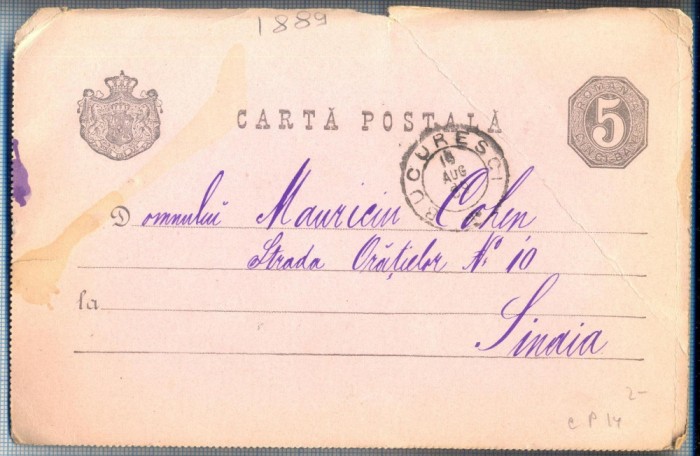 1889
CARTĂ POSTALĂ
ROMANIA
5
CINCI-BANI
BUCURESCI
15
AUG
Domnului Mauriciu Cohen
Strada Orățielor No 10
la
Sinaia
2-
c P 14